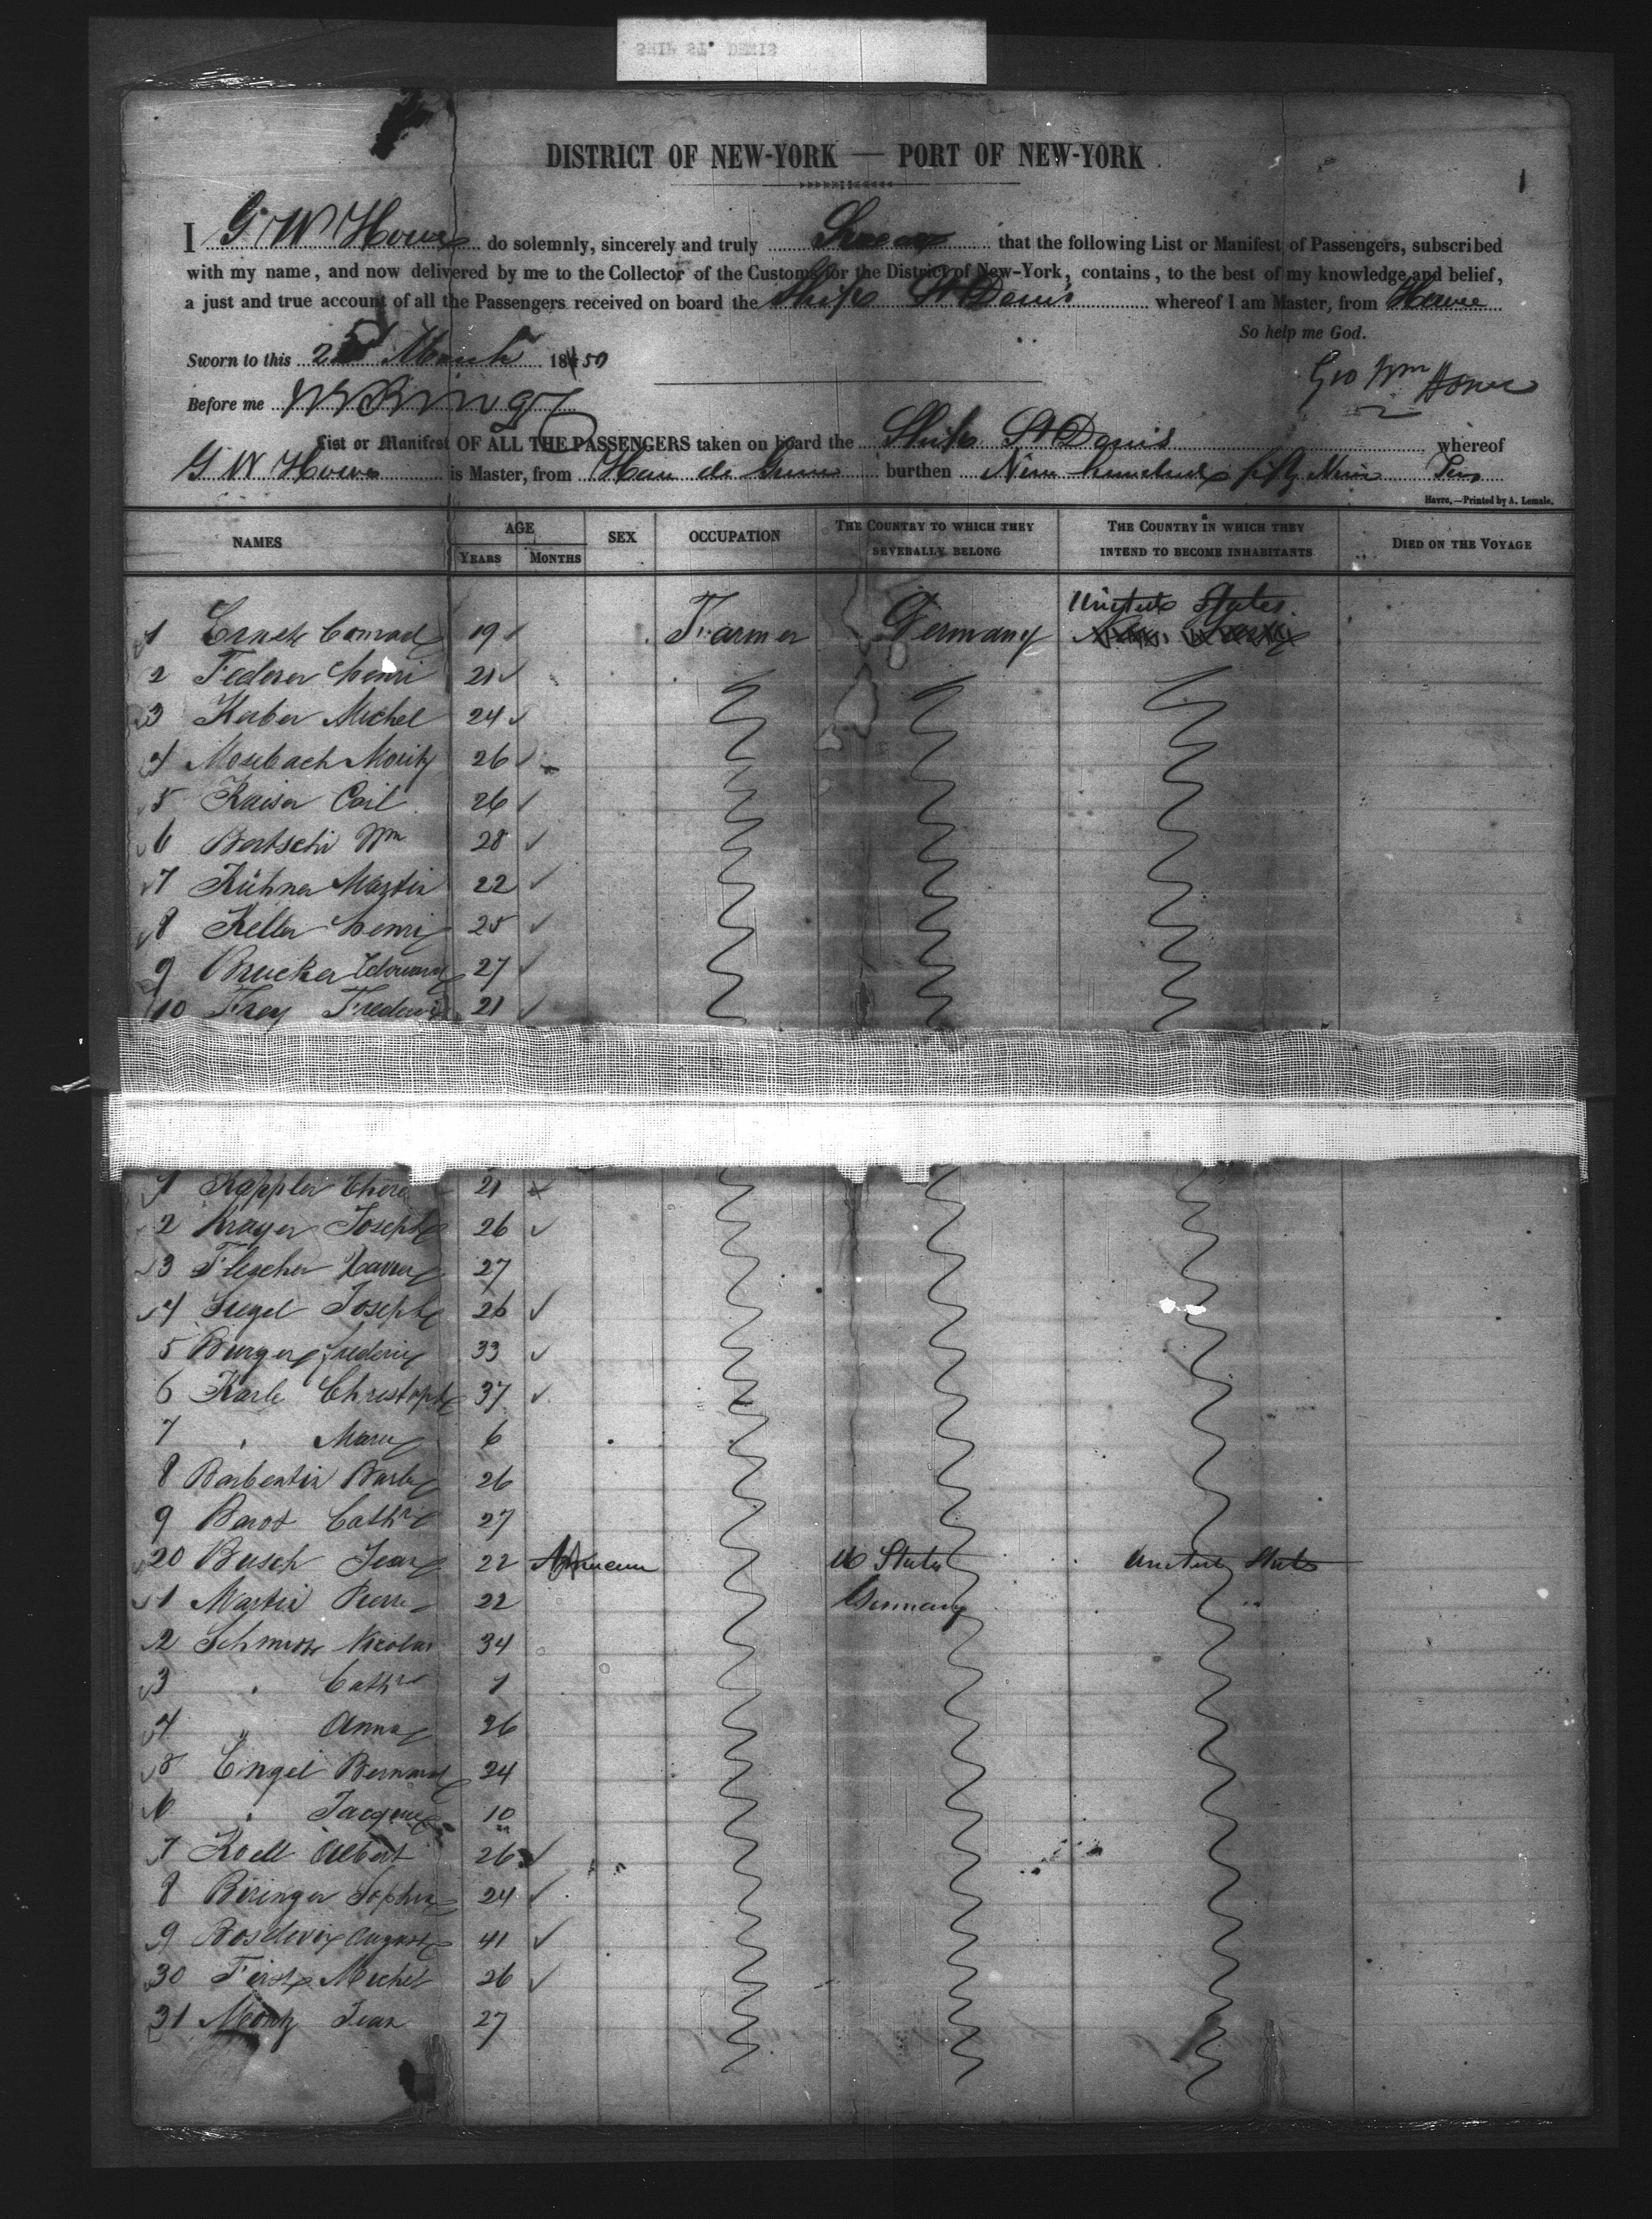 SHIP ST. DENIS
DISTRICT OF NEW-YORK — PORT OF NEW-YORK
1
I G W Howes do solemnly, sincerely and truly Swear that the following List or Manifest of Passengers, subscribed
with my name, and now delivered by me to the Collector of the Customs for the District of New-York, contains, to the best of my knowledge and belief,
a just and true account of all the Passengers received on board the Ship St Denis whereof I am Master, from Havre
So help me God.
Sworn to this 25 March 1850
Geo Wm Howes
Before me
List or Manifest OF ALL THE PASSENGERS taken on board the Ship St Denis whereof
G W Howes is Master, from burthen Nine hundred fifty Nine Tons
Havre.—Printed by A. Lemale.
NAMES AGE YEARS MONTHS SEX OCCUPATION THE COUNTRY TO WHICH THEY SEVERALLY BELONG THE COUNTRY IN WHICH THEY INTEND TO BECOME INHABITANTS DIED ON THE VOYAGE
United States
1 Ernst Conrad 19 Farmer Germany
2 Federer Henri 21
3 Kerber Michel 24
4 Mosebach Moritz 26
5 Kaiser Carl 26
6 Bertschi Wm 28
7 Kühner Martin 22
8 Keller Henri 25
9 Brucker Edouard 27
10 Frey Frederic 21
1 Kappler 21
2 Krayer Joseph 26
3 Flescher Xavier 27
4 Siegel Joseph 26
5 Burger Frederic 33
6 Karle Christophe 37
7 " Marie 6
8 Barbentin 26
9 Barot Cathe 27
20 Busch Jean 22 U States United States
1 Martin Pierre 22 Germany "
2 Schmitt Nicolas 34
3 " Cathe 1
4 " Anna 26
5 Engel Bernard 24
6 " Jacques 10
7 Koell Albert 26
8 Beringer Sophia 24
9 August 41
30 Först Michel 26
31 Moritz Jean 27